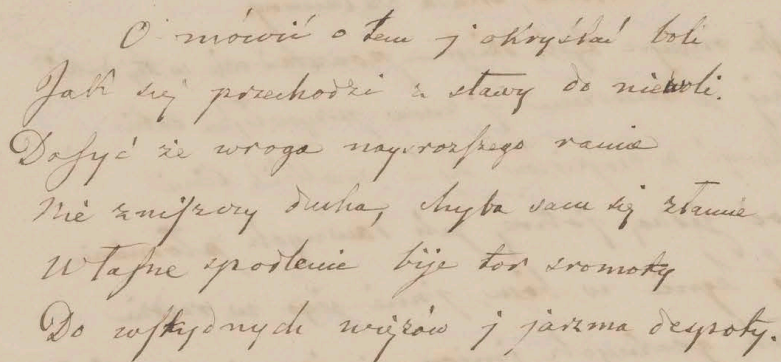 O mówić o tem j okryślać boli
Jak się przechodzi z sławy do niewoli.
Dosyć że wroga naysrozszego ramie
Nie zniszczy ducha, chyba sam się złamie
Własne spodlenie bije tor sromoty
Do wstydnych więzów j jarzma despoty.